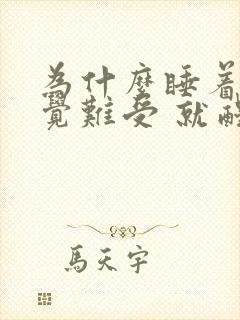 為什麼睡着
覺難受 就醒
馬天宇